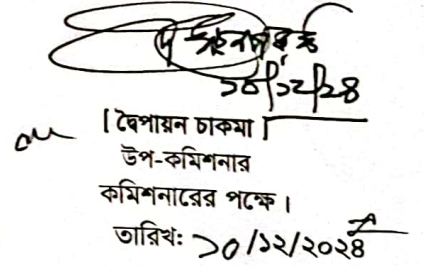 ১০/১২/২৪
[দ্বৈপায়ন চাকমা]
উপ-কমিশনার
কমিশনারের পক্ষে।
তারিখ: ১০/১২/২০২৪